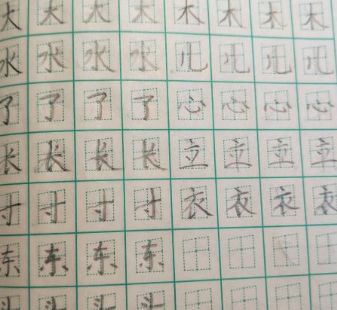 木 木 木 木 木 木 木
水 水 水 水
了 了 了 了 心 心 心 心
长 长 长 长 立 立 立 立
寸 寸 寸 寸 衣 衣 衣 衣
东 东 东 东
头 头 头 头